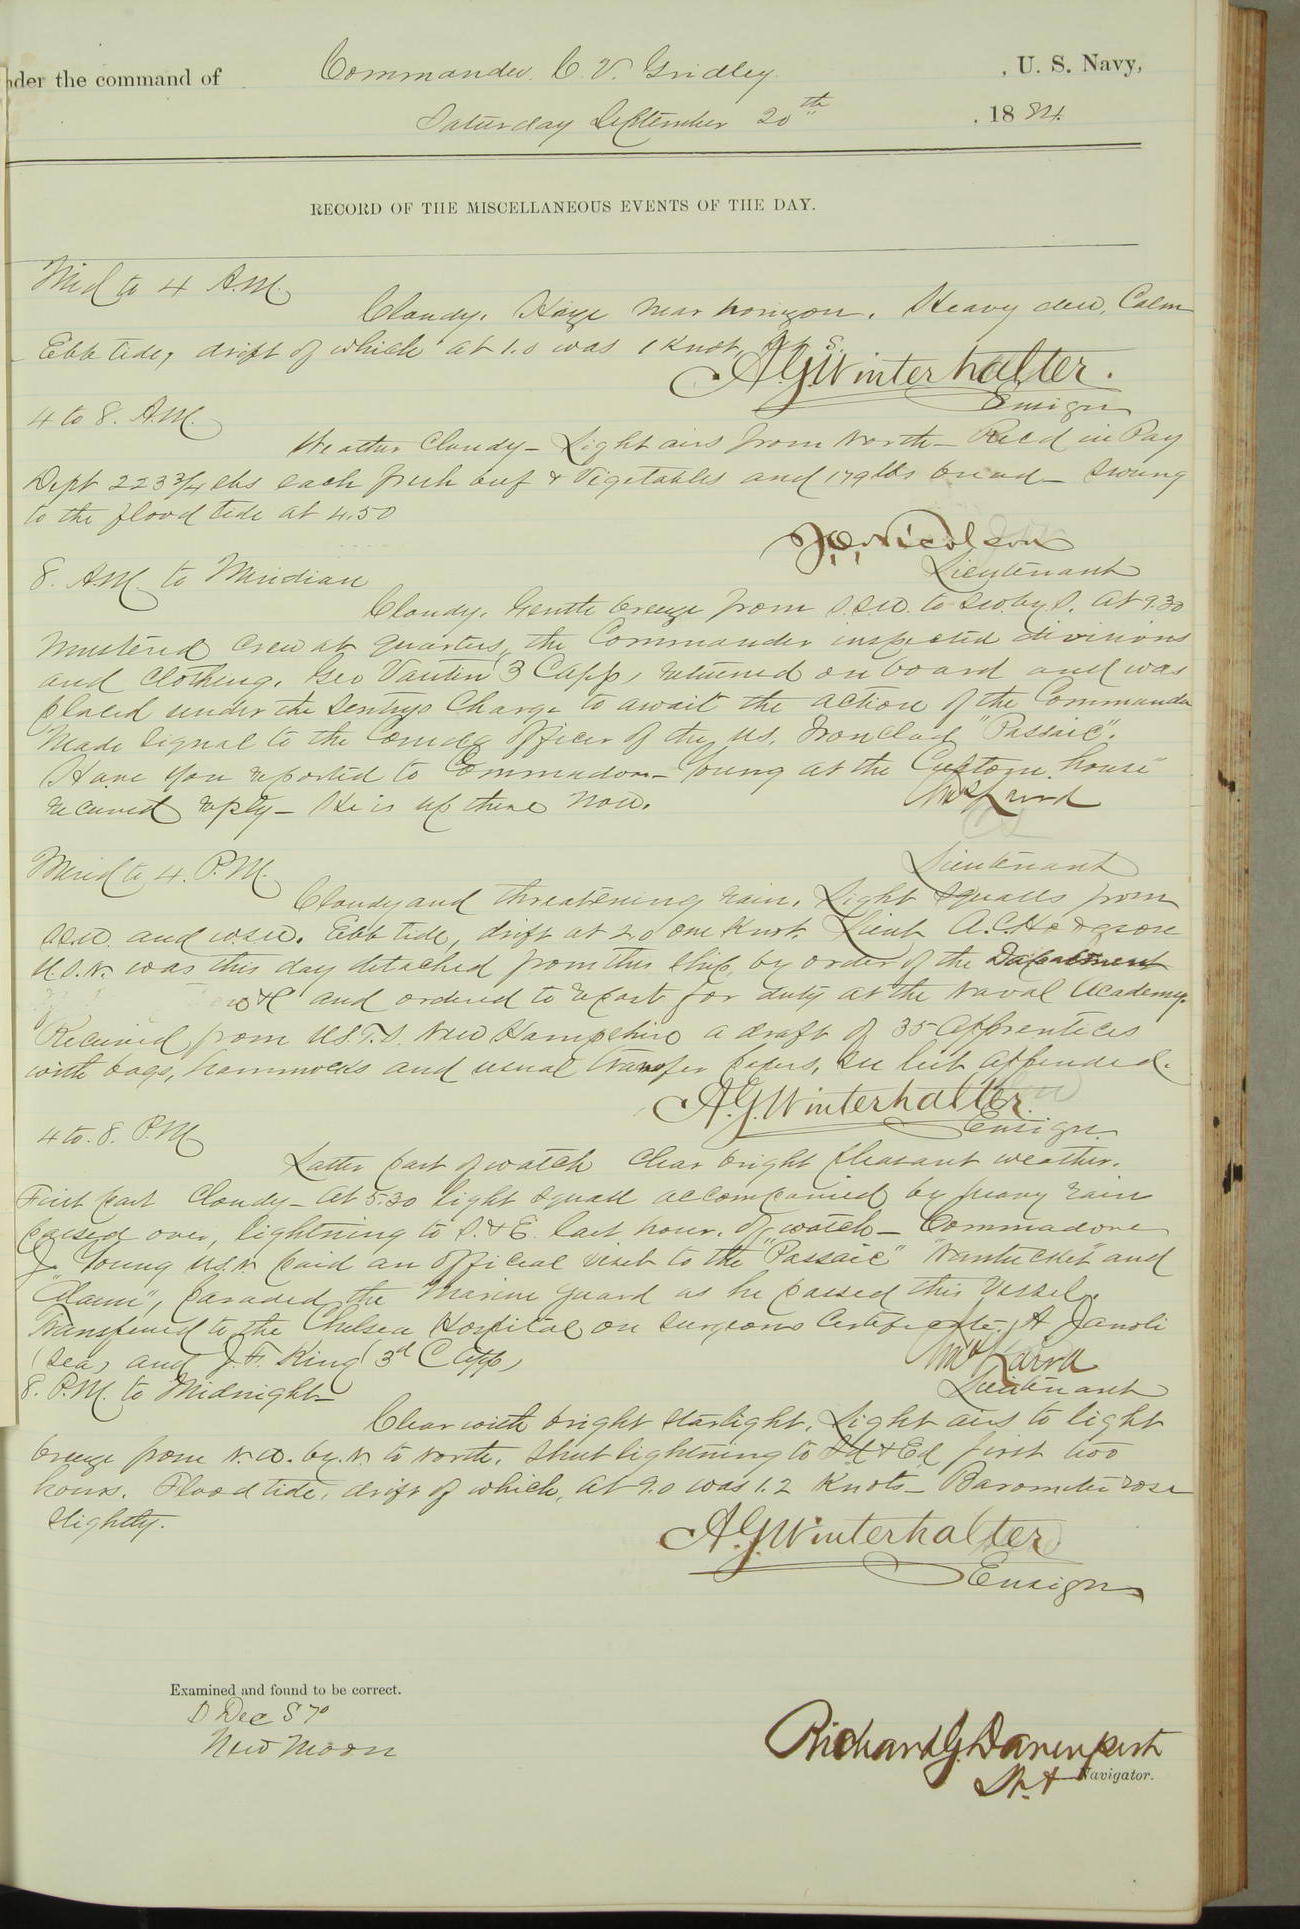 nder the command of Commander C. V. Gridley , U. S. Navy,
Saturday September 20th , 1884.
RECORD OF THE MISCELLANEOUS EVENTS OF THE DAY.
Mid to 4 A.M.
Cloudy. Haze near horizon. Heavy dew, Calm
Ebb tide, drift of which at 1.0 was 1 Knot, S.
A.G. Winterhalter.
Ensign
4 to 8. A.M.
Weather Cloudy - Light airs from North - Rec'd in Pay
Dept 223 3/4 lbs each fresh beef & Vegetables and 179 lbs bread - Swung
to the flood tide at 4.50
Lieutenant
8. A.M. to Meridian
Cloudy. Gentle breeze from S.S.W. to S.W. by S. At 9.30
mustered crew at quarters, the Commander inspected divisions
and clothing. Geo 3 C app, returned on board and was
placed under the Sentrys Charge to await the action of the Commander
Made Signal to the Comdg Officer of the U.S. Ironclad "Passaic".
Have you reported to Commodore Young at the Custom house"
received reply - He is up there now.
Lieutenant
Merid to 4. P.M.
Cloudy and threatening rain. Light squalls from
S.S.W. and W.S.W. Ebb tide, drift at 2.0 one Knot. Lieut A.C. Hodgson
U.S.N. was this day detached from this ship, by order of the Department
and ordered to report for duty at the Naval Academy.
Received from U.S.T.S. New Hampshire a draft of 35 Apprentices
with bags, hammocks and usual transfer papers, see list appended.
A.G. Winterhalter.
Ensign.
4 to. 8. P.M.
Latter part of watch clear bright pleasant weather.
First part Cloudy - At 5.30 light squall accompanied by heavy rain
passed over, lightning to S. & E. last hour. of watch - Commodore
J. Young U.S.N. paid an official visit to the "Passaic" "Nantucket" and
paraded the Marine guard as he passed this Vessel.
Transferred to the Chelsea Hospital on Surgeons Certificate, A Janoli
(Sea) and J. F. King (3d C app)
Lieutenant
8. P.M. to Midnight
Clear with bright starlight. Light airs to light
breeze from N.W. by N. to North. Sheet lightning to Sd & Ed first two
hours. Flood tide, drift of which, at 9.0 was 1.2 Knots - Barometer rose
slightly.
A.G. Winterhalter
Ensign
Examined and found to be correct.
D Dec S 7°
New Moon
Richard G. Davenport
Lt. Navigator.